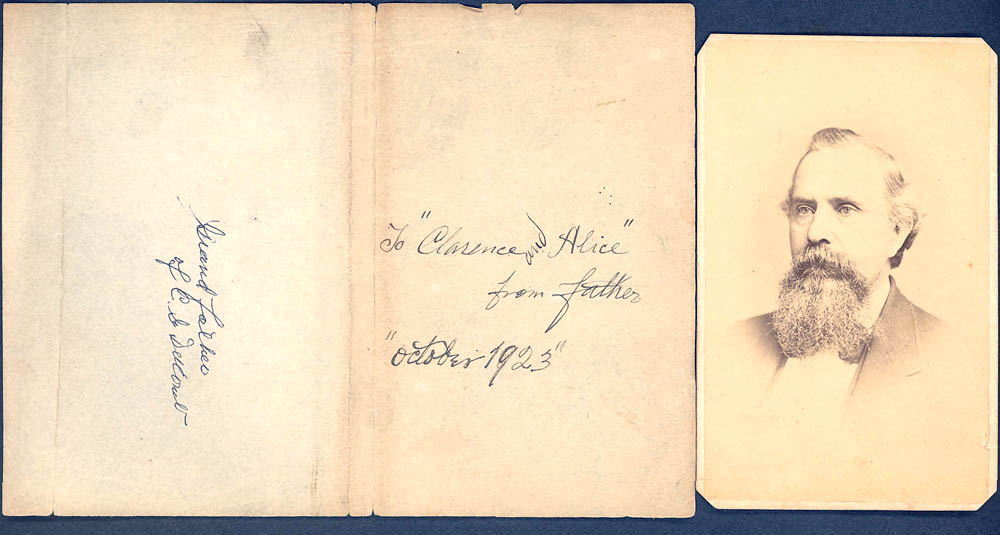 Grand father
of C. S.
To "Clarence and Alice"
from father
"October 1923"